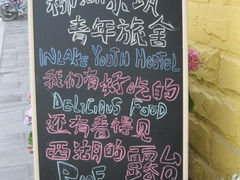 青年旅舍
INLAKE YOUTH HOSTEL
我们有好吃的
DELICIOUS FOOD
还有看得见
西湖的露台